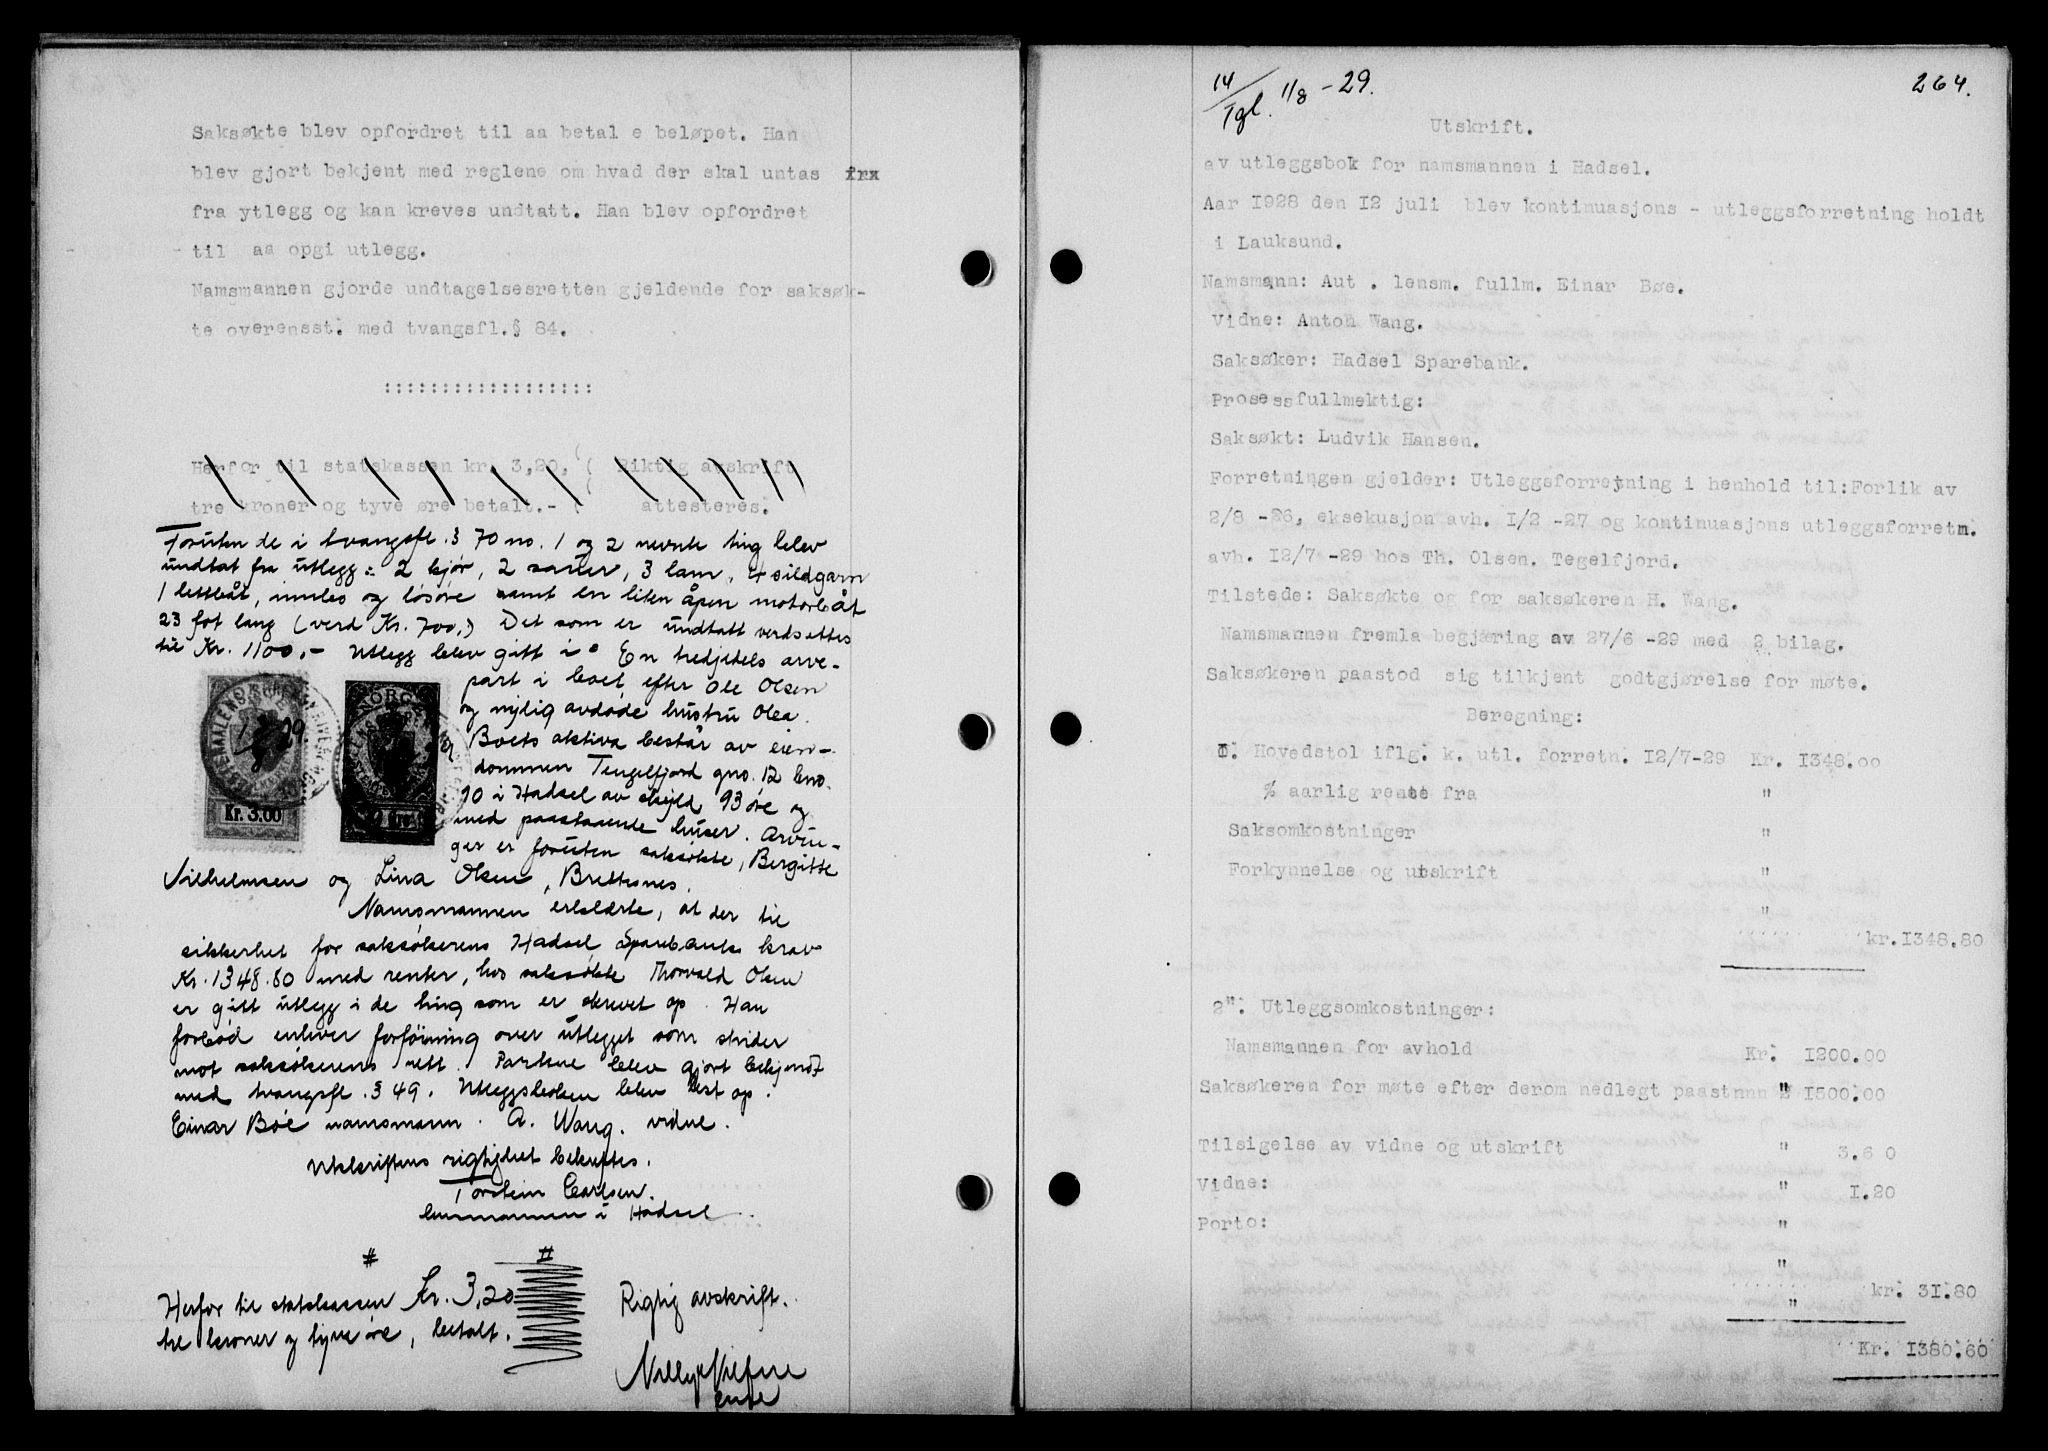 Saksøkte blev opfordret til aa betal e beløpet. Han
blev gjort bekjent med reglene om hvad der skal untas frx
fra ytlegg og kan kreves undtatt. Han blev opfordret
til aa opgi utlegg.
Namsmannen gjorde undtagelsesretten gjeldende for saksøk-
te overensst. med tvangsfl.§ 84.
::::::::::::::::::
Herfor til statskassen kr. 3,20, ( Riktig avskrift
tre kroner og tyve øre betalt.- ( attesteres.
Foruten de i tvangsfl. § 70 no. 1 og 2 nevnte ting blev
undtat fra utlegg: 2 kjør, 2 sauer, 3 lam, 4 sildgarn
1 lettbåt, innbo og løsøre samt en liten åpen motorbåt
23 fot lang (verd Kr. 700,) Det som er undtatt verdsettes
til Kr. 1100,- Utlegg blev gitt i: En tredjedels arve-
part i boet efter Ole Olsen
og nylig avdøde hustru Olea.
Boets aktiva består av eien-
dommen Tengelfjord gno. 12 bno.
10 i Hadsel av skyld 93 øre og
med paastaaende huser. Arvin-
ger er foruten saksøkte, Bergitte
Vilhelmsen og Lina Olsen, Brettesnes.
Kr. 3.00
NORGE
1/8 29.
Namsmannen erklærte, at der til
sikkerhet for saksøkerens Hadsel Sparebanks krav
Kr. 1348.80 med renter, hos saksøkte Thorvald Olsen
er gitt utlegg i de ting som er skrevet op. Han
forbød enhver forføining over utlegget som strider
mot saksøkerens rett. Partene blev gjort bekjendt
med tvangsfl. § 49. Utleggsboken blev lest op.
Einar Bøe namsmann. A. Wang. vidne.
Utskriftens rigtighet bekreftes.
Torstein Carlsen.
lensmannen i Hadsel.
Herfor til statskassen Kr. 3,20
tre kroner og tyve øre, betalt.
Rigtig avskrift.
14/Tgl. 1/8 - 29.
264.
Utskrift.
av utleggsbok for namsmannen i Hadsel.
Aar 1928 den 12 juli blev kontinuasjons - utleggsforretning holdt
i Lauksund.
Namsmann: Aut . lensm. fullm. Einar Bøe.
Vidne: Anton Wang.
Saksøker: Hadsel Sparebank.
Prosessfullmektig:
Saksøkt: Ludvik Hansen.
Forretningen gjelder: Utleggsforretning i henhold til:Forlik av
2/8 -26, eksekusjon avh. 1/2 -27 og kontinuasjons utleggsforretn.
avh. 12/7 -29 hos Th. Olsen. Tegelfjord.
Tilstede: Saksøkte og for saksøkeren H. Wang.
Namsmannen fremla begjæring av 27/6 -29 med 2 bilag.
Saksøkeren paastod sig tilkjent godtgjørelse for møte.
Beregning:
1. Hovedstol iflg. k. utl. forretn. 12/7-29 Kr. 1348.00
% aarlig rente fra "
Saksomkostninger "
Forkynnelse og utskrift "
"
kr.1348.80
2". Utleggsomkostninger:
Namsmannen for avhold Kr. 1200.00
Saksøkeren for møte efter derom nedlegt paastnnn " 1500.00
Tilsigelse av vidne og utskrift " 3.60
Vidne: " 1.20
Porto: "
"
kr. 31.80
"
Kr. 1380.60